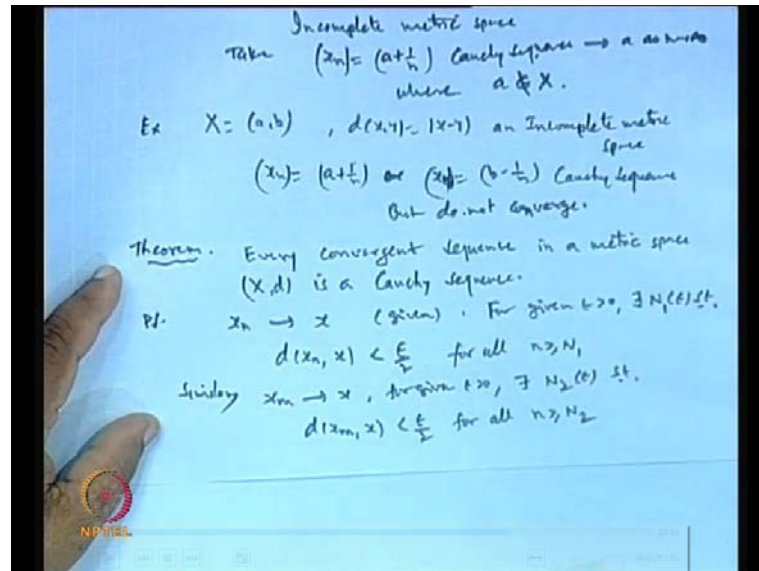 Incomplete metric space
Take (xn) = (a+1/n) Cauchy sequence → a as n→∞
where a ∉ X.
Ex X = (a,b) , d(x,y) = |x-y| an Incomplete metric
space
(xn) = (a+1/n) or (xn) = (b-1/n) Cauchy sequence
But do not converge.
Theorem. Every convergent sequence in a metric space
(X,d) is a Cauchy sequence.
Pf. xn → x (given). For given ε>0, ∃ N1(ε) st.
d(xn, x) < ε/2 for all n ≥ N1
Similarly xm → x, for given ε>0, ∃ N2(ε) st.
d(xm, x) < ε/2 for all n ≥ N2
NPTEL